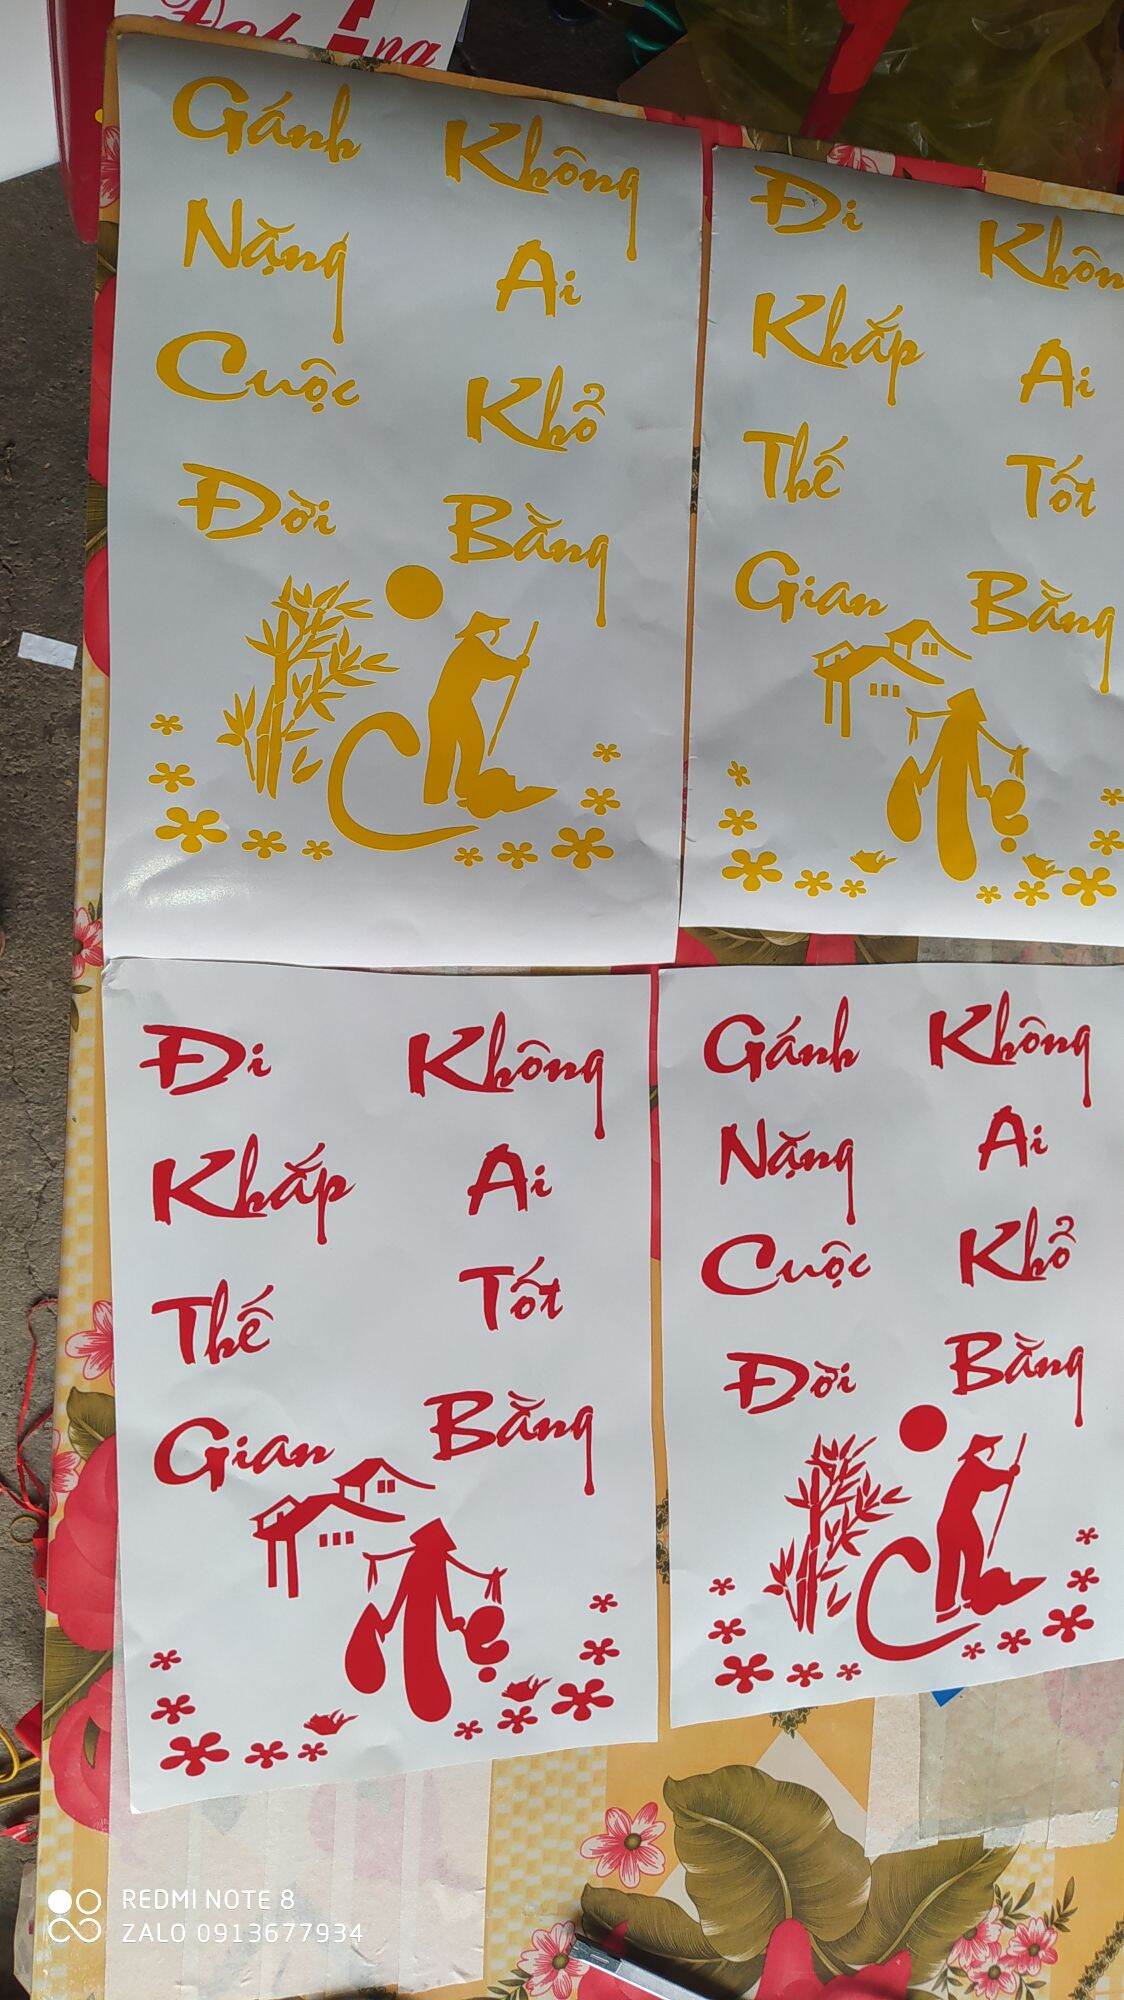 Gánh Không
Nặng Ai
Cuộc Khổ
Đời Bằng
Đi Khôn
Khắp Ai
Thế Tốt
Gian Bằng
Đi Không
Khắp Ai
Thế Tốt
Gian Bằng
Gánh Không
Nặng Ai
Cuộc Khổ
Đời Bằng
REDMI NOTE 8
ZALO 0913677934